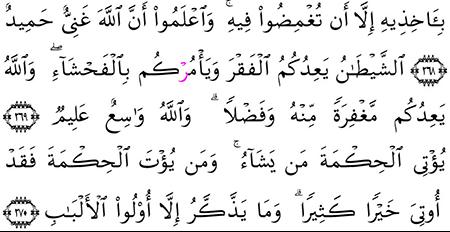 بِـَٔاخِذِيهِ إِلَّا أَن تُغْمِضُواْ فِيهِ ۚ وَٱعْلَمُواْ أَنَّ ٱللَّهَ غَنِيٌّ حَمِيدٌ
٢٦٨ ٱلشَّيْطَٰنُ يَعِدُكُمُ ٱلْفَقْرَ وَيَأْمُرْكُم بِٱلْفَحْشَآءِ ۖ وَٱللَّهُ
يَعِدُكُم مَّغْفِرَةً مِّنْهُ وَفَضْلًا ۗ وَٱللَّهُ وَٰسِعٌ عَلِيمٌ ٢٦٩
يُؤْتِى ٱلْحِكْمَةَ مَن يَشَآءُ ۚ وَمَن يُؤْتَ ٱلْحِكْمَةَ فَقَدْ
أُوتِىَ خَيْرًا كَثِيرًا ۗ وَمَا يَذَّكَّرُ إِلَّا أُوْلُواْ ٱلْأَلْبَٰبِ ٢٧٠